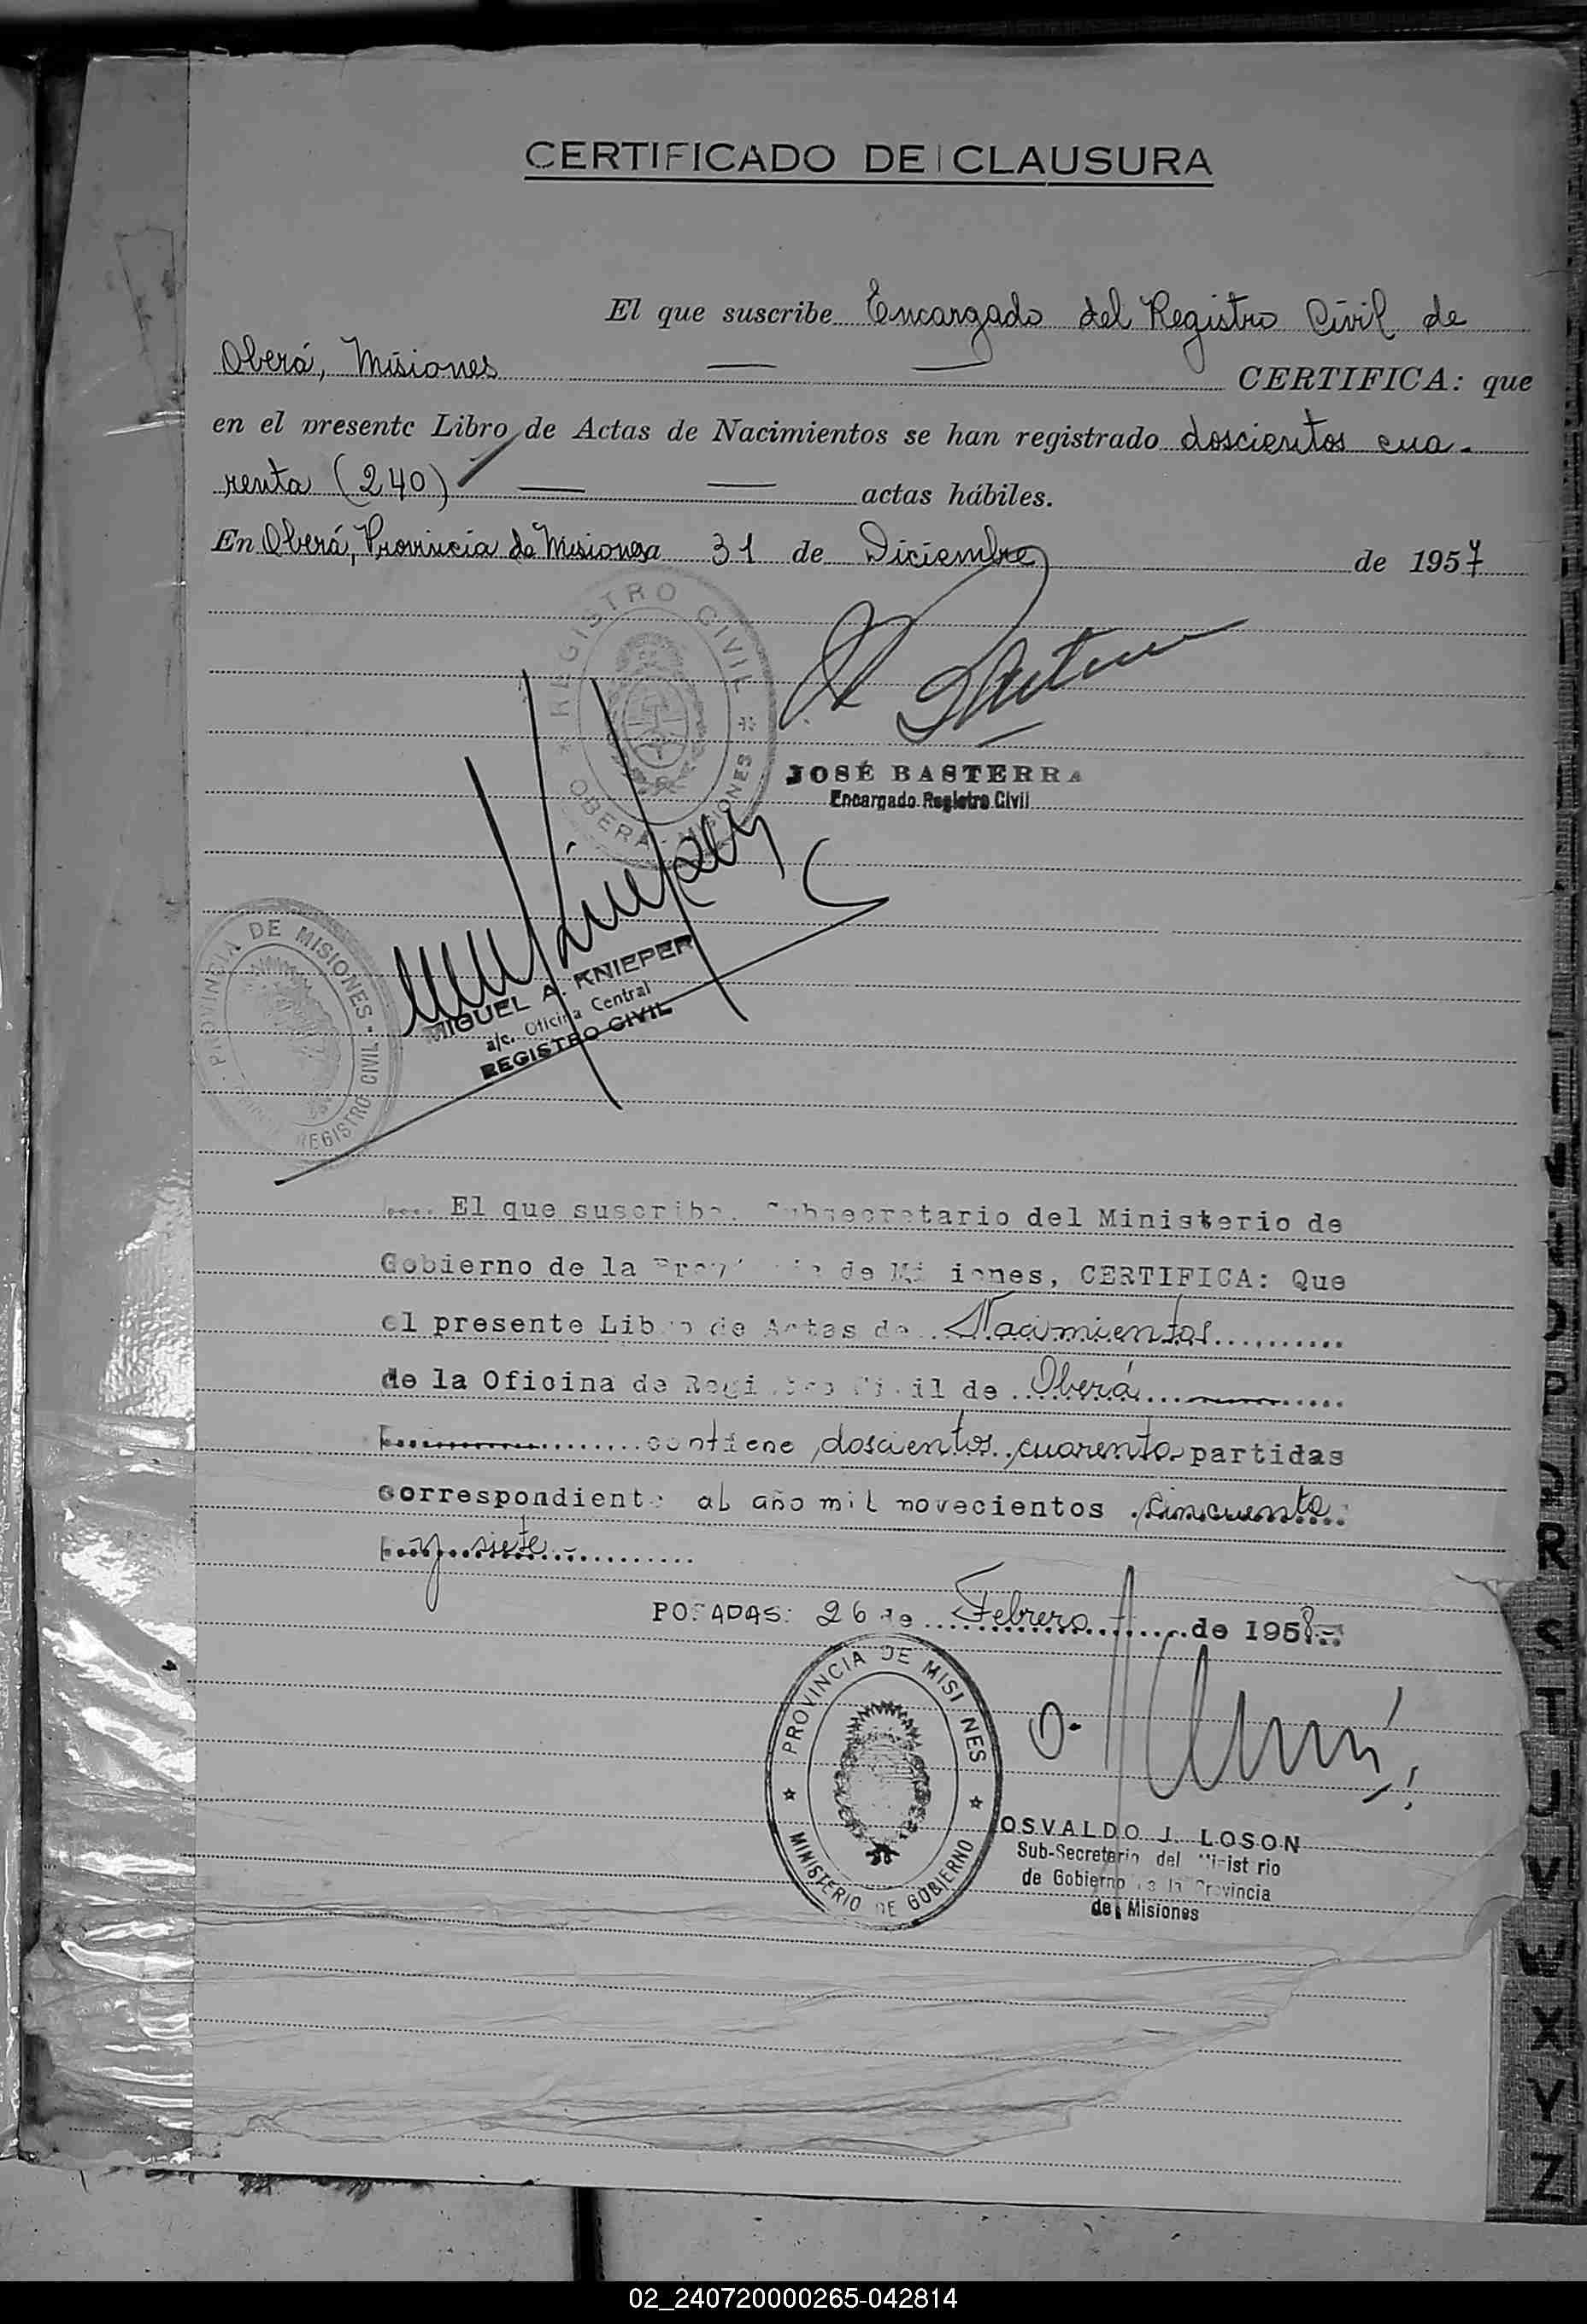 CERTIFICADO DE CLAUSURA
El que suscribe Encargado del Registro Civil de
Oberá, Misiones CERTIFICA: que
en el presente Libro de Actas de Nacimientos se han registrado doscientos cua-
renta (240) actas hábiles.
En Oberá, Provincia de Misiones 31 de Diciembre de 1957
REGISTRO CIVIL
* OBERÁ - MISIONES *
JOSÉ BASTERRA
Encargado Registro Civil
PROVINCIA DE MISIONES -
REGISTRO CIVIL
MIGUEL A. KNIEPER
a/c. Oficina Central
REGISTRO CIVIL
.... El que suscribe, Subsecretario del Ministerio de
Gobierno de la Provincia de Misiones, CERTIFICA: Que
el presente Libro de Actas de Nacimientos..........
de la Oficina de Registro Civil de Oberá
contiene doscientos cuarenta partidas
correspondiente al año mil novecientos cincuenta
y siete
POSADAS: 26 de Febrero de 1958.-
PROVINCIA DE MISIONES
MINISTERIO DE GOBIERNO
OSVALDO J. LOSON
Sub-Secretario del Ministerio
de Gobierno de la Provincia
de Misiones
R
S
T
U
V
W
X
Y
Z
02_240720000265-042814